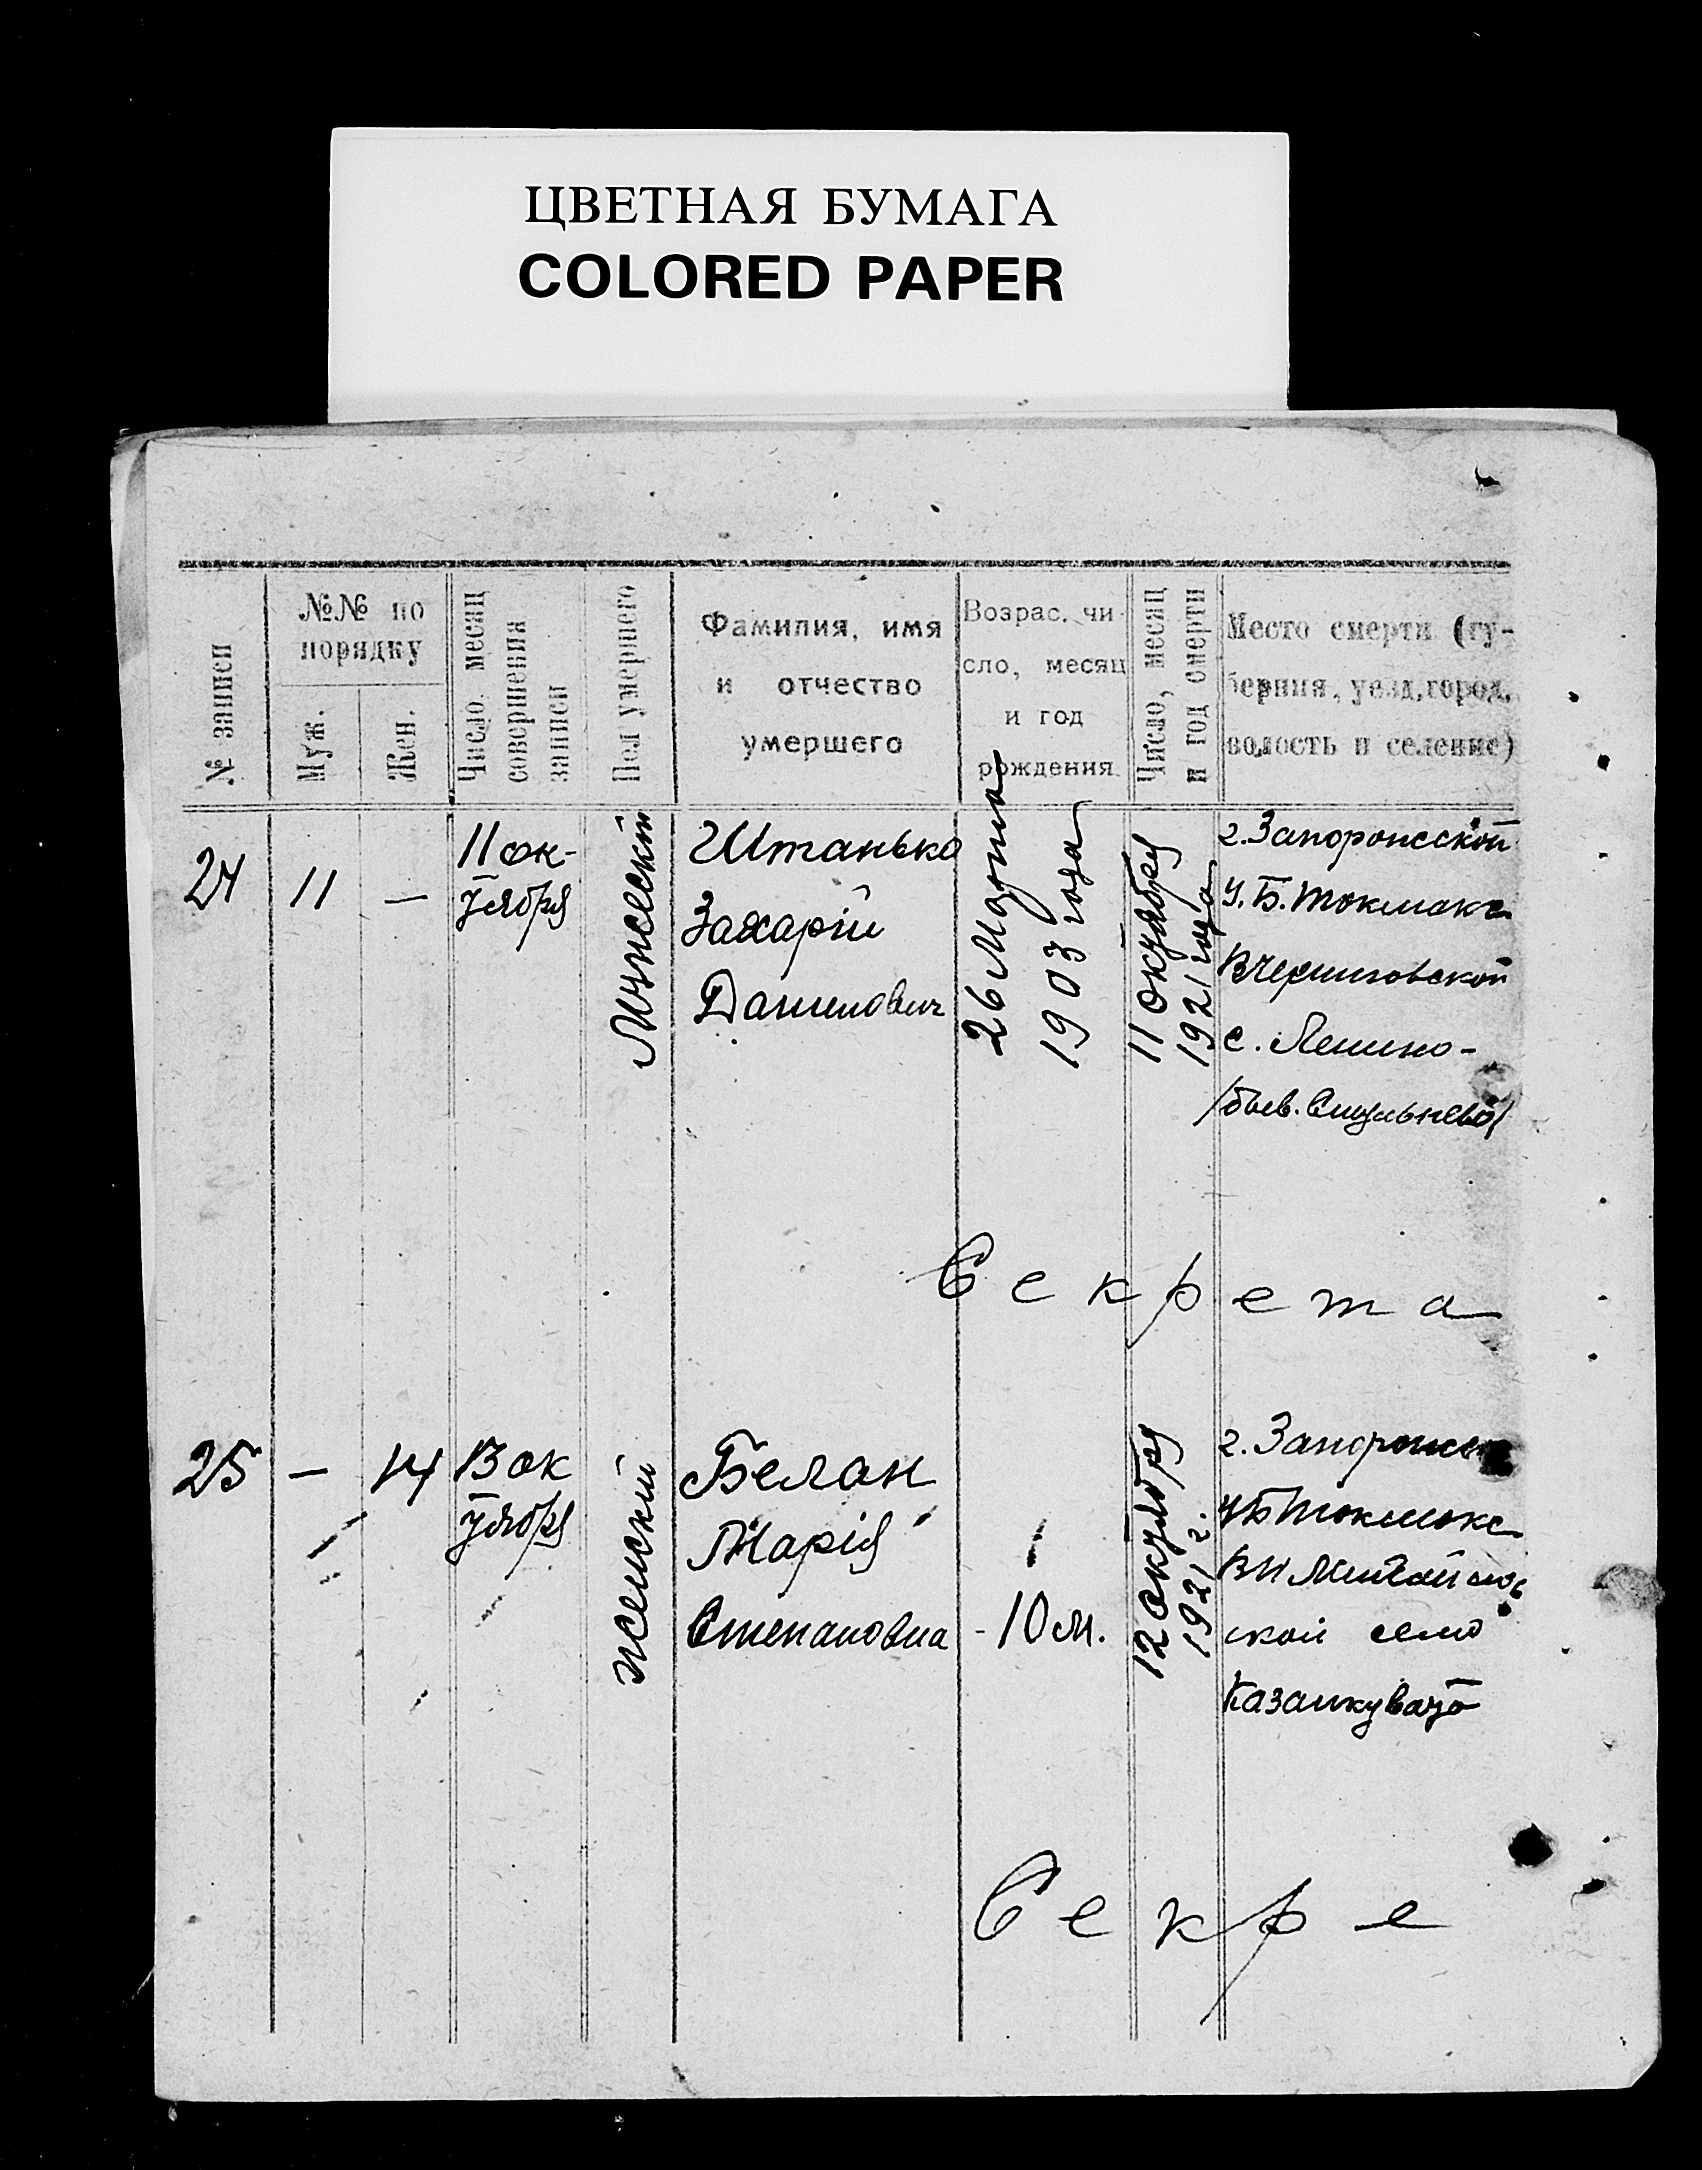 ЦВЕТНАЯ БУМАГА
COLORED PAPER
№ записи
№№ по
порядку
Муж.
Жен.
Число, месяц
совершения
записи
Пол умершего
Фамилия, имя
и отчество
умершего
Возрас, чи-
сло, месяц
и год
рождения
Число, месяц
и год смерти
Место смерти (гу-
берния, уезд, город,
волость и селение)
24
11
—
11 ок-
тября
Мужеский
Штанько
Захарій
Данилович
26 Марта
1903 года
11 октября
1921 года
г. Запорожсской
у. Б. Токмакс
В Черниговской
с. Ленино-
Секрета
25
—
14
13 ок
тября
женский
Белан
Марія
Степановна
- 10 м.
12 октября
1921 г.
г. Запорожск
у Б Токмакс
ской село
Секре